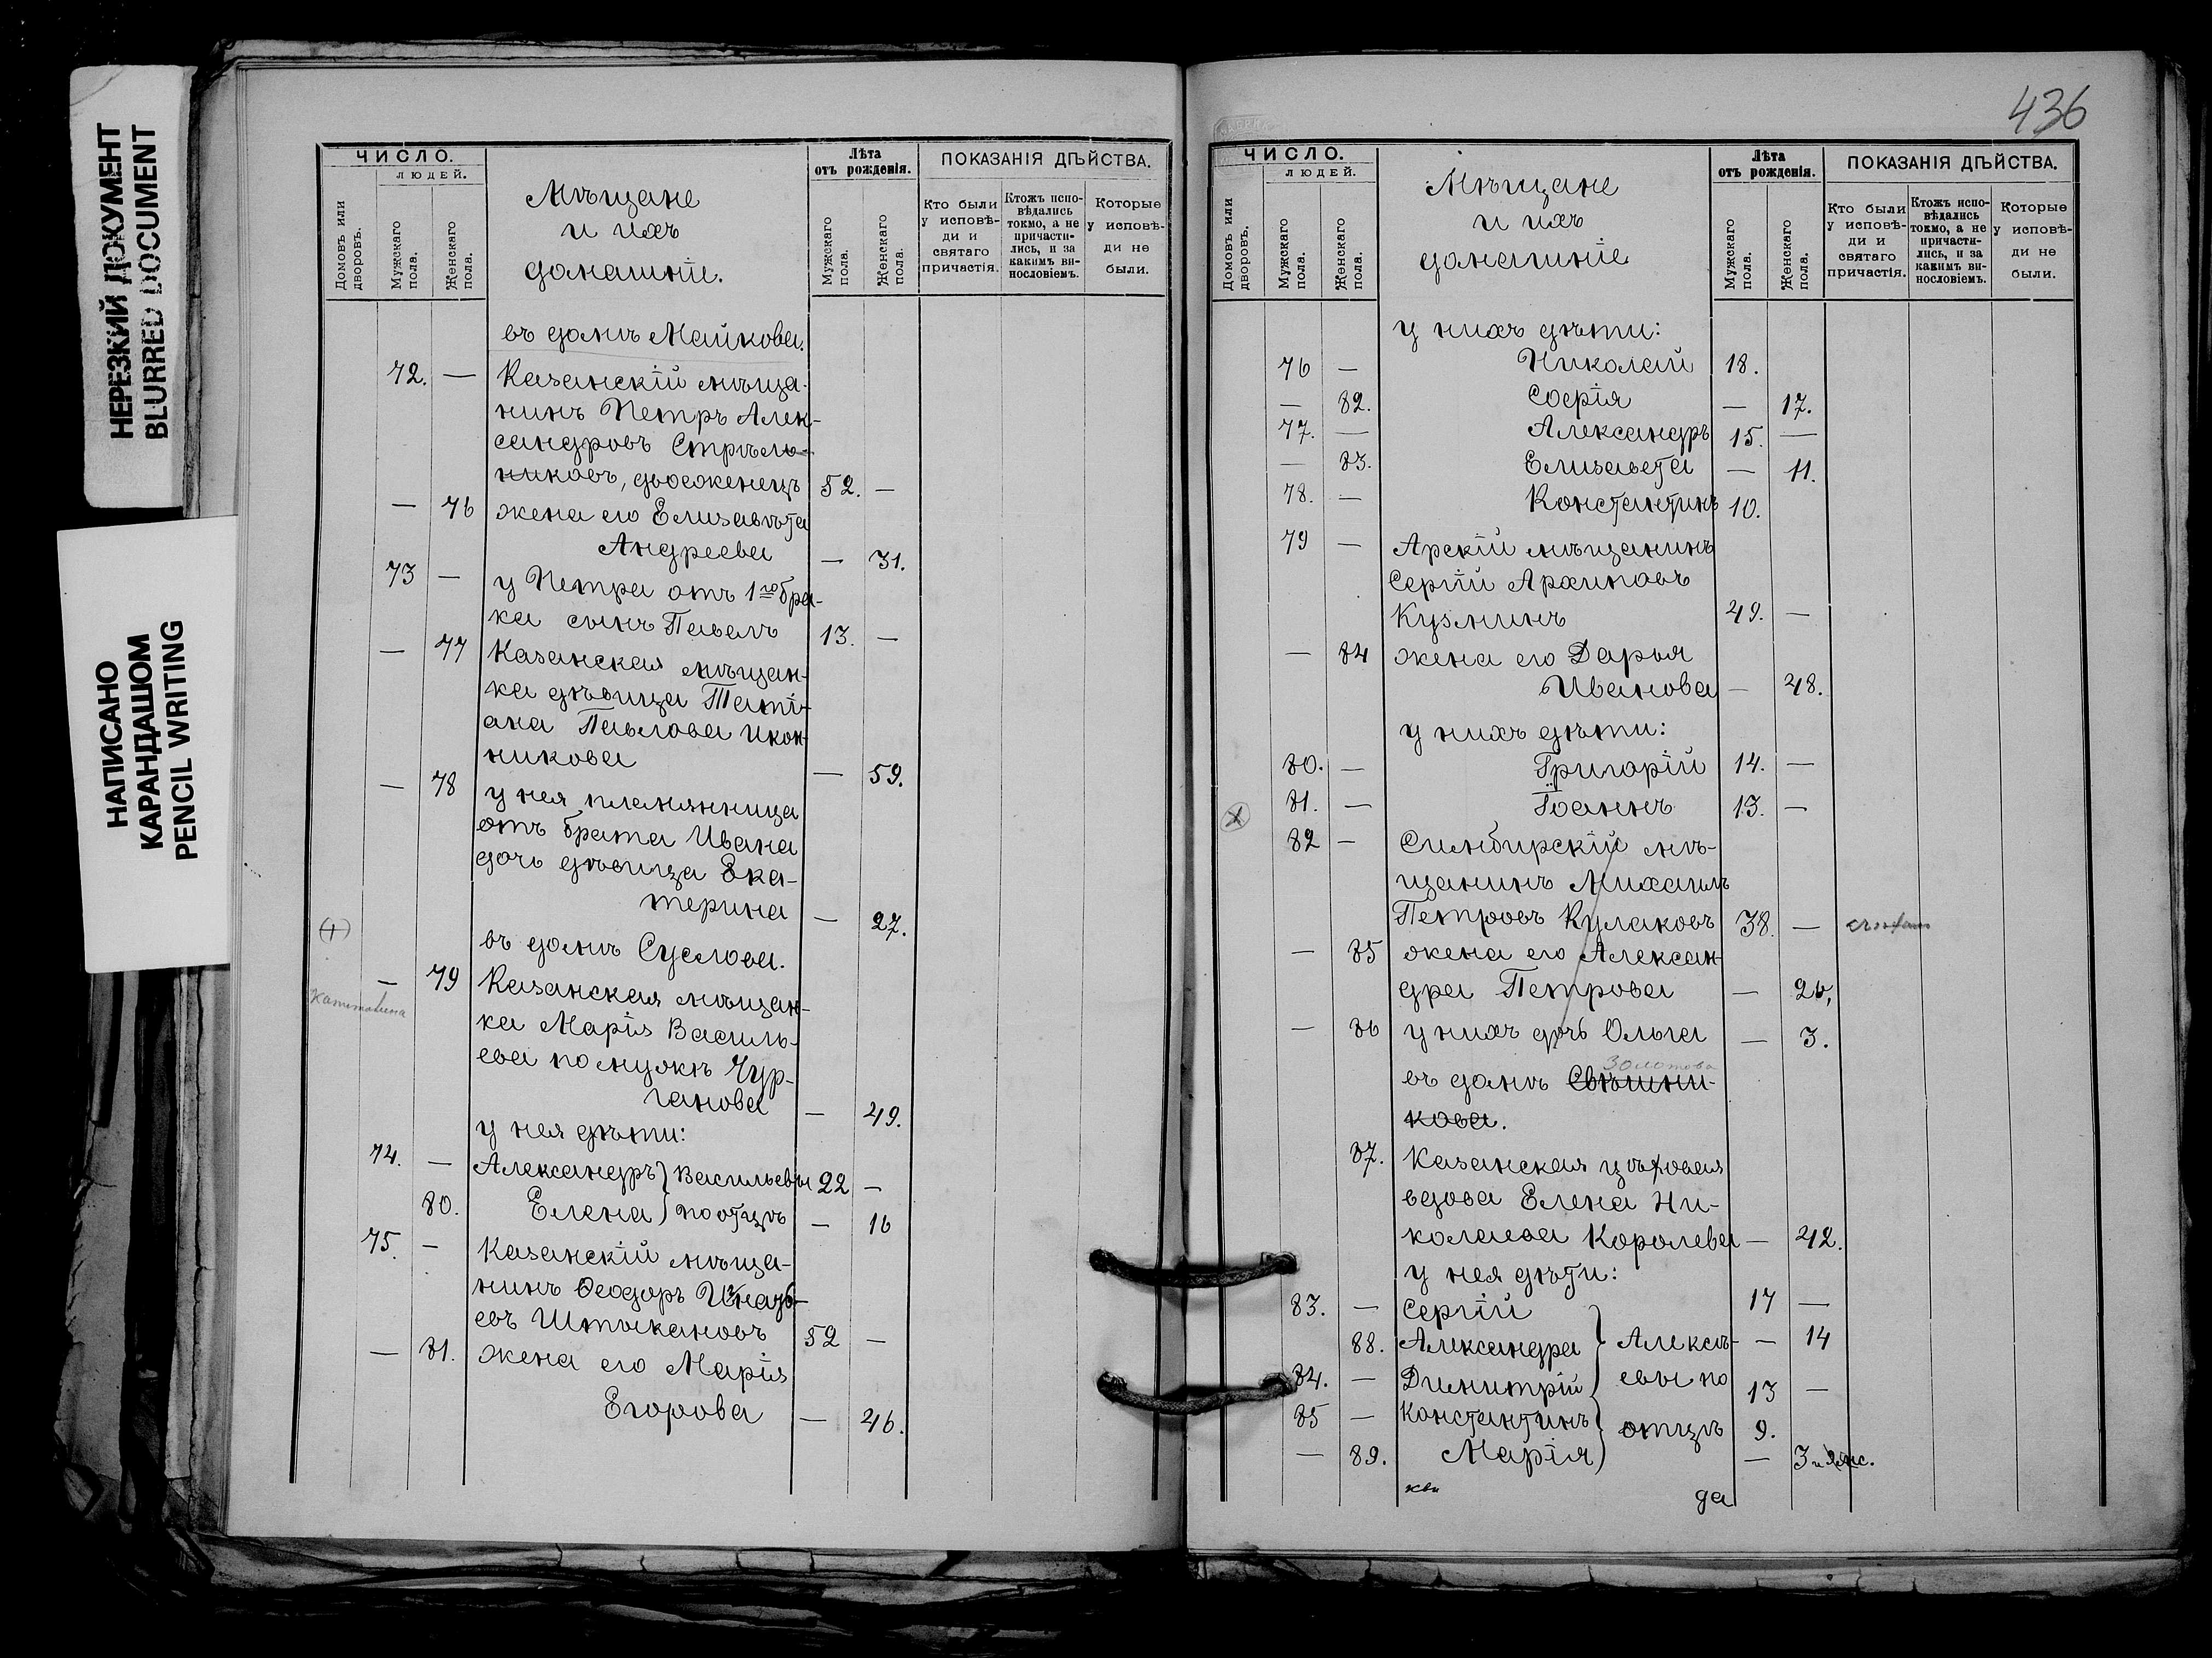 НЕРЕЗКИЙ ДОКУМЕНТ
BLURRED DOCUMENT
НАПИСАНО
КАРАНДАШОМ
PENCIL WRITING
ЧИСЛО.
ЛЮДЕЙ.
Домовъ или дворовъ.
Мужскаго пола.
Женскаго пола.
Мѣщане
и ихъ
домашніе.
Лѣта
отъ рожденія.
Мужскаго пола.
Женскаго пола.
ПОКАЗАНІЯ ДѢЙСТВА.
Кто были у исповѣ-ди и святаго причастія.
Ктожъ испо-вѣдались токмо, а не причасти-лись, и за какимъ ви-нословіемъ.
Которые у исповѣ-ди не были.
въ домѣ Майкова.
72. — Казанскій мѣща-
нинъ Петръ Алек-
сандровъ Стрѣль-
никовъ, двоеженецъ 52. —
— 76 жена его Елизавѣта
Андреева — 31.
73 — у Петра отъ 1го бра-
ка сынъ Павелъ 13. —
— 77 Казанская мѣщан-
ка дѣвица Таті-
ана Павлова Икон-
никова — 59.
— 78 у нея племянница
отъ брата Ивана
дочь дѣвица Ека-
терина — 27.
(+)
въ домѣ Суслова.
— 79 Казанская мѣщан-
ка Марія Василь-
ева по мужѣ Чур-
ганова — 49.
у нея дѣти:
74. — Александръ } Васильевы 22 —
80. Елена } по отцѣ — 16
75. — Казанскій мѣща-
нинъ Ѳеодоръ Игнать-
евъ Штыкановъ 52 —
— 81. жена его Марія
Егорова — 46.
436
ЧИСЛО.
ЛЮДЕЙ.
Домовъ или дворовъ.
Мужскаго пола.
Женскаго пола.
Мѣщане
и ихъ
домашніе
Лѣта
отъ рожденія.
Мужскаго пола.
Женскаго пола.
ПОКАЗАНІЯ ДѢЙСТВА.
Кто были у исповѣ-ди и святаго причастія.
Ктожъ испо-вѣдались токмо, а не причасти-лись, и за какимъ ви-нословіемъ.
Которые у исповѣ-ди не были.
у нихъ дѣти:
76 — Николай 18.
— 82. Софія — 17.
77. — Александръ 15. —
— 83. Елизавета — 11.
78. — Константинъ 10.
79 — Арскій мѣщанинъ
Сергій Архиповъ
Кузминъ 49. —
— 84 жена его Дарья
Иванова — 48.
у нихъ дѣти:
80. — Григорій 14. —
81. — Іоаннъ 13. —
82 — Симбирскій мѣ-
щанинъ Михаилъ
Петровъ Кулаковъ 38. —
— 85 жена его Алексан-
дра Петрова — 26.
— 86 у нихъ дочь Ольга — 3.
Золотова
въ домѣ Свѣшни-
кова.
87. Казанская цѣховая
вдова Елена Ни-
колаева Королева — 42.
у нея дѣти:
83. — Сергій 17 —
88. Александра } Алексѣ- — 14
84. — Димитрій } евы по 13 —
85 — Константинъ } отцѣ 9.
— 89. Марія — 3
да